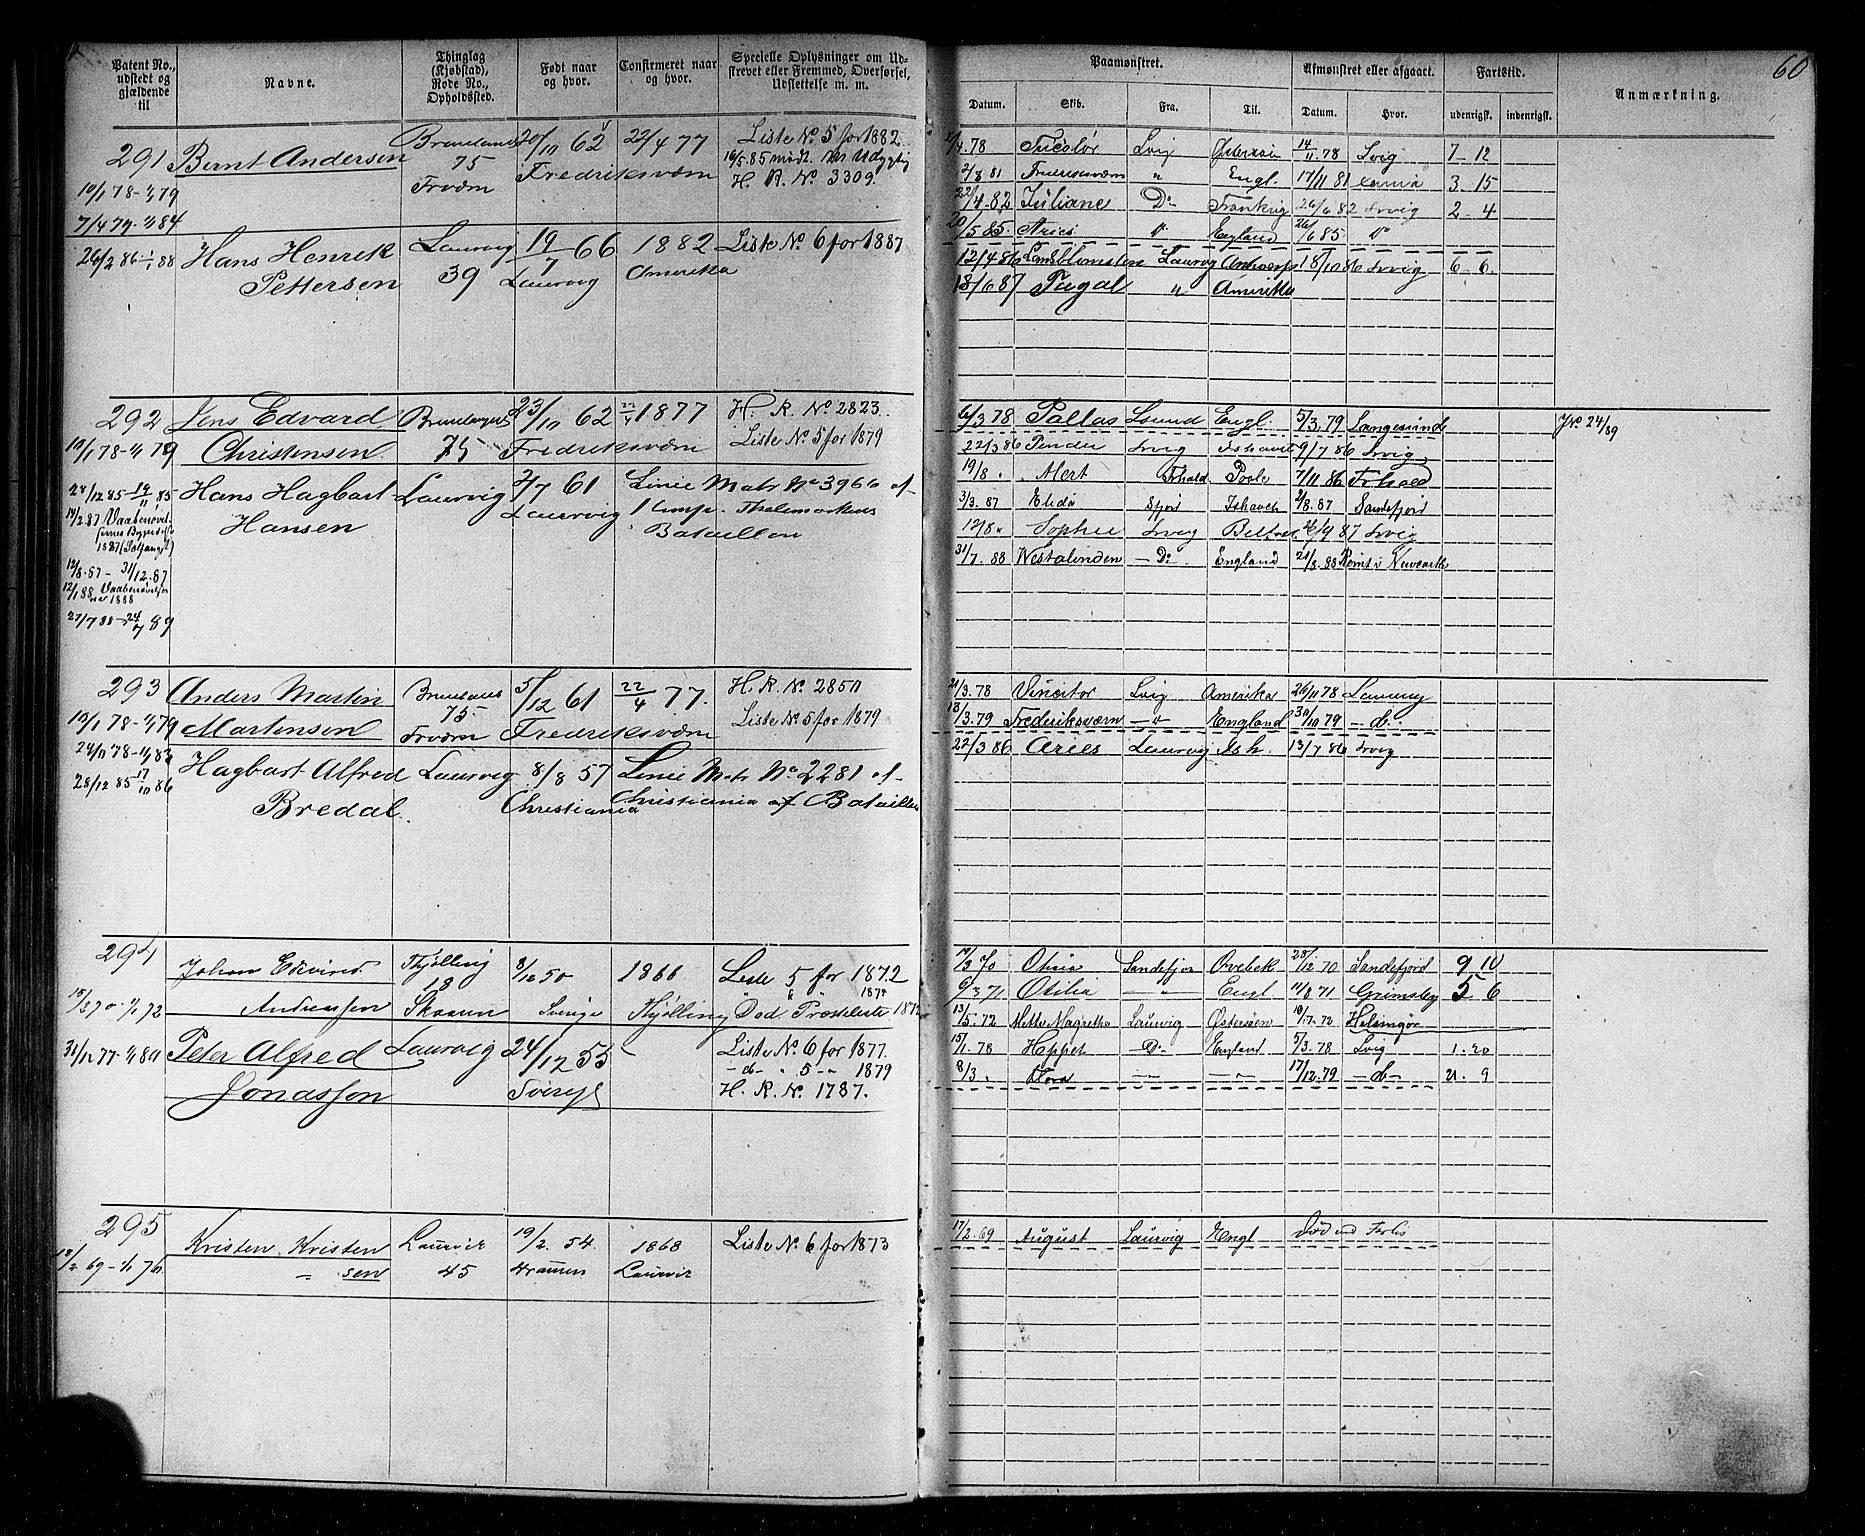 60
Patent No., udstedt og gjældende til
Navne.
Thinglag (Kjøbstad), Rode No., Opholdssted.
Født naar og hvor.
Confirmeret naar og hvor.
Specielle Oplysninger om Udskrevet eller Fremmed, Overførsel, Udslettelse m. m.
Paamønstret.
Afmønstret eller afgaaet.
Fartstid.
Anmærkning.
Datum.
Skib.
Fra.
Til.
Datum.
Hvor.
udenrigsk.
indenrigsk.
291 Bernt Andersen
75
20/10 62
22/4 77
Liste No 5 for 1882
Fredriksværn
H. R. No 3309.
10/1 78 - 1/1 79
7/4 79 - 1/1 84
78 Lvig 14/11 78 Lvig 7 - 12
2/8 81 Fredriksværn " Engl. 17/11 81 3 - 15
22/4 82 Juliane Do Frankrig 26/6 82 Lvig 2 - 4
20/5 85 Aries England 26/6 85
26/2 86 - 1/1 88
Hans Henrik Pettersen
Laurvig 39
19/7 66 Laurvig
1882 Amerika
Liste No 6 for 1887
12/4 86 Laurvig Antwerp 18/10 86 Lvig 6 - 6.
18/6 87 Fugal " Amerika
292 Jens Edvard Christensen
10/1 78 - 1/1 79
75
23/10 62 Fredriksværn
22/4 1877
H. R. No 2823.
Liste No 5 for 1879
6/3 78 Pallas Lsund Engl. 5/3 79 Langesund
J No 24/89
22/3 86 Lvig Ishavet 9/7 86 Lvig
19/8 " Frhald Poole 7/11 86 Frhald
3/3 87 Sfjord Ishavet 2/8 87 Sandefjord
12/8 " Sophie Lvig 26/9 87 Lvig
31/7 88 Westalinden - Do England 21/8 88 Rømt i Newcastle
28/12 85 - 19/11 85
Hans Hagbart Hansen
Laurvig
2/7 61 Laurvig
Linie Matr No 3966 af
1 Comp. Thelemarkens
Bataillon
14/2 87
12/8 87 - 31/12 87
12/1 88 Vaabenøvelser
1888
27/7 88 - 24/7 89
293 Anders Martin Martensen
10/1 78 - 1/1 79
24/11 78 - 1/1 83
75
5/12 61 Fredriksværn
22/4 77.
H. R. No 2850
Liste No 5 for 1879
21/3 78 Vincitor Lvig Amerika 26/11 78 Laurvig
13/3 79 Frederiksværn - " - England 30/10 79 - do -
22/3 86 Aries Laurvig Ish. 13/7 86 Lvig
28/12 85 17/10 86
Hagbart Alfred Bredal.
Laurvig
8/8 57 Christiania
Linie Matr No 2281 af
Christiania Bataillon
294
Johan Edvard Andreassen
Thjølling 18
8/10 50 Sverige
1866 Thjølling
Liste 5 for 1872
6 " 1874
Død
15/2 70 - 1/1 72
17/3 70 Otilia Sandefjor 28/12 70 Sandefjord 9 10
9/3 71 Otilia - " - Engl 11/8 71 Grimsby 5 6
13/5 72 Mette Magrethe Laurvig Østersøen 10/7 72 Helsingør
15/1 78 Heppet - Do - England 5/3 78 Lvig 1 . 20
8/3 " Flora - " - - " - 17/12 79 - do - 21 . 9
31/12 77 - 1/1 80
Peter Alfred Jonassen
Laurvig
24/12 55 Sverige
Liste No 6 for 1877.
- do - " 5 - " - 1879
H. R. No 1787.
295
Kristen Kristensen
Laurvig 45
19/2. 54.
1868 Laurvig
Liste No 6 for 1873
18/2 69 - 1/1 70.
17/2 69 August Laurvig Engl Død